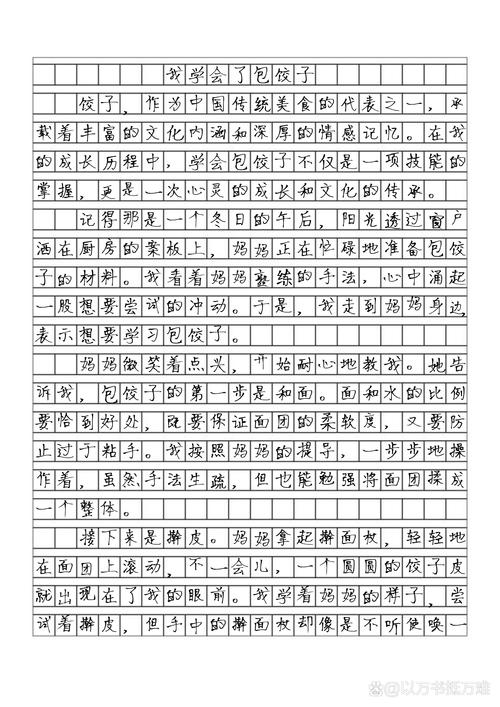 我学会了包饺子
饺子，作为中国传统美食的代表之一，承
载着丰富的文化内涵和深厚的情感记忆。在我
的成长历程中，学会包饺子不仅是一项技能的
掌握，更是一次心灵的成长和文化的传承。
记得那是一个冬日的午后，阳光透过窗户
洒在厨房的案板上，妈妈正在忙碌地准备包饺
子的材料。我看着妈妈熟练的手法，心中涌起
一股想要尝试的冲动。于是，我走到妈妈身边，
表示想要学习包饺子。
妈妈微笑着点头，开始耐心地教我。她告
诉我，包饺子的第一步是和面。面和水的比例
要恰到好处，既要保证面团的柔软度，又要防
止过于粘手。我按照妈妈的提导，一步步地操
作着，虽然手法生疏，但也能勉强将面团揉成
一个整体。
接下来是擀皮。妈妈拿起擀面杖，轻轻地
在面团上滚动，不一会儿，一个圆圆的饺子皮
就出现在了我的眼前。我学着妈妈的样子，尝
试着擀皮，但手中的擀面杖却像是不听使唤一
@以万书抵万难